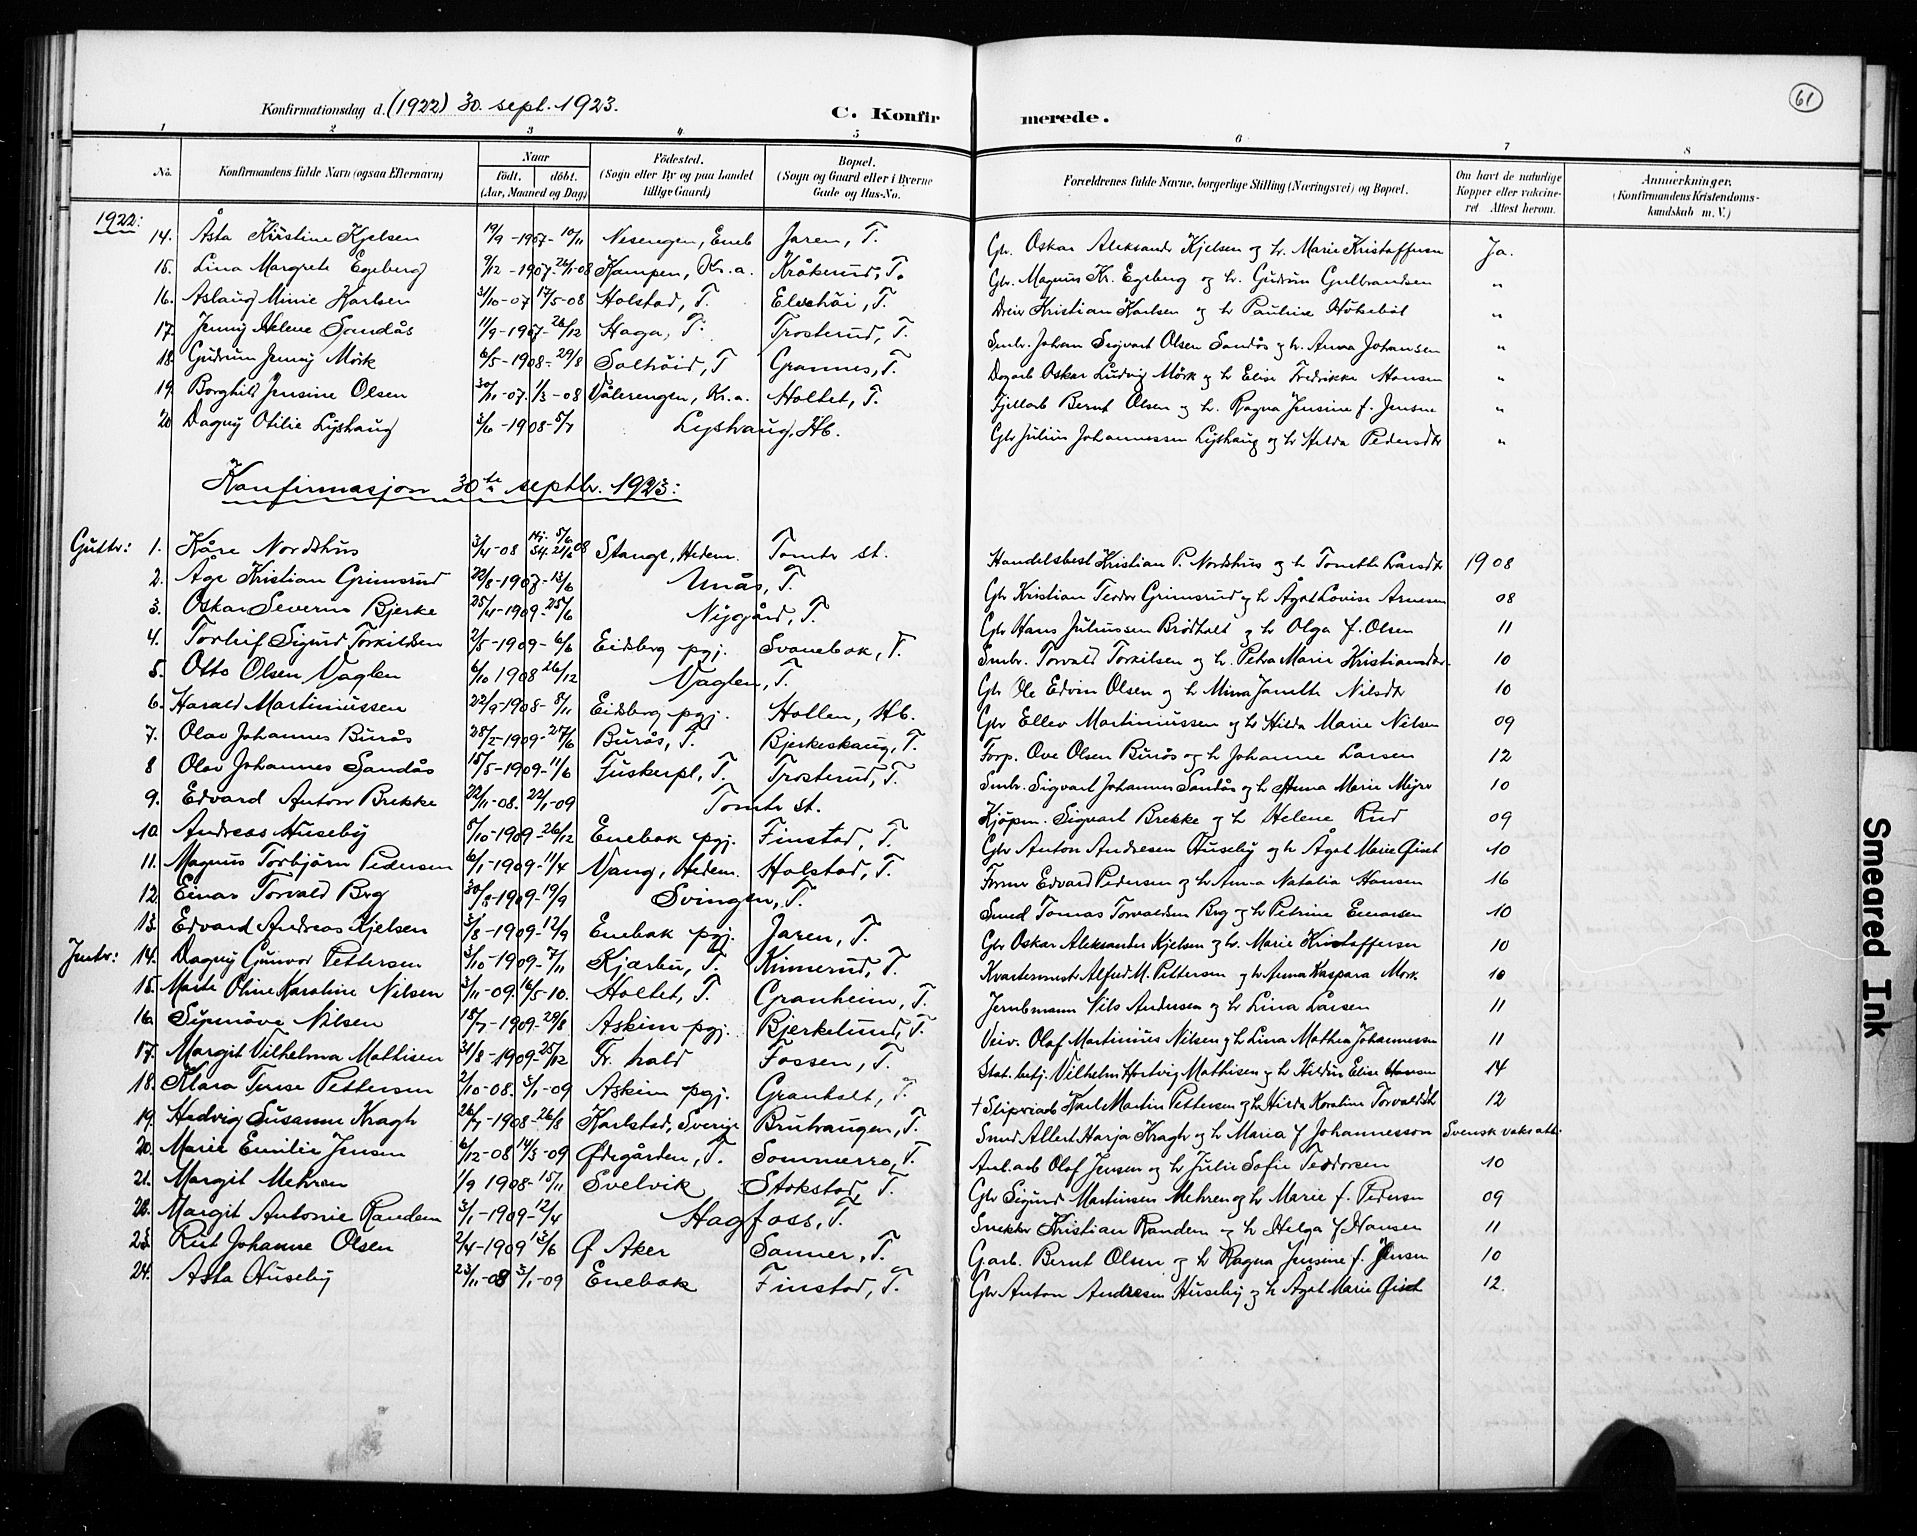 Konfirmationsdag d. (1922) 30. sept. 1923.
C. Konfirmerede.
61
1 2 3 4 5 6 7 8
No. Konfirmandens fulde Navn (ogsaa Efternavn) Naar født, døbt. (Aar, Maaned og Dag) Fødested. (Sogn eller By og paa Landet tillige Gaard) Bopæl. (Sogn og Gaard eller i Byerne Gade og Hus-No. Forældrenes fulde Navne, borgerlige Stilling (Næringsvei) og Bopæl. Om havt de naturlige Kopper eller vaccineret Attest herom. Anmærkninger. (Konfirmandens Kristendomskundskab m. V.)
1922:
14. Åsta Kirstine Kjelsen 19/9-1907-10/11 Nesengen, Eneb Jaren, T. Gbr. Oskar Aleksander Kjelsen og h. Marie Kristoffersen Ja.
15. Lina Margrete Egeberg 9/12-1907-26/1-08 Kampen, Kr.a. Kråkerud, T. Gbr. Magnus Kr. Egeberg og h. Gudrun Gulbrandsen "
16. Aslaug Minie Karlsen 3/10-07 17/5-08 Holstad, T. Elvehøi, T. Dreier Kristian Karlsen og h Pauline "
17. Jenny Helene Sandås 11/9-1907-26/12 Haga, T. Trosterud, T. Smbr. Johan Sigvart Olsen Sandås og h. Anna Johansen "
18. Gudrun Jenny Mørk 6/5-1908-29/8 Solhøid, T Grannes, T. Dagarb Oskar Ludvig Mørk og h Elise Fredrikke Hansen "
19. Borghild Jensine Olsen 30/11-07. 1/3-08 Vålerengen, Kr.a. Holtet, T. Fjellarb Bernt Olsen og h. Ragna Jensine f. Jensen "
20 Dagny Otilie Lyshaug 3/6-1908-5/7 Lyshaug, Hb. Gbr Julius Johannessen Lyshaug og h Hilda Pedersdtr "
Konfirmasjon 30te septbr. 1923:
Gutter: 1. Kåre Nordshus 3/4-08 Hj. 5/6 St. 21/6 08 Stange, Hedem. Tomter st. Handelsbest Kristian P. Nordshus og h Tonette Larsdtr 1908
2. Åge Kristian Grimsrud 22/8-1907-13/6 Unås, T. Gbr Kristian Teodor Grimsrud og h Ågot Lovise Arnesen 08
3. Oskar Severin Bjerke 25/4-1909-25/6 Nygård, T. Gbr Hans Juliussen Brødholt og h Olga f. Olsen 11
4. Torleif Sigurd Torkildsen 2/5-1909-6/6 Eidsberg pgj. Svanebok, T. Smbr. Torvald Torkilsen og h. Petra Marie Kristiansdtr. 10
5. Otto Olsen Vaglen 6/10 1908 26/12 Vaglen, T. Gbr Ole Edvin Olsen og h Mina Janette Nilsdtr 10
6. Harald Martiniussen 22/9-1908-8/11 Eidsberg pgj. Hollen, Hb. Gbr Ellev Martiniussen og h Hilda Marie Nilsen 09
7. Olav Johannes Burås 28/2-1909-27/6 Burås, T. Bjerkeskaug, T. Forp. Ove Olsen Burås og h Johanne Larsen 12
8 Olav Johannes Sandås 15/5-1909-11/6 Tuskerpl, T. Trosterud, T. Smbr. Sigvart Johannes Sandås og h Anna Marie Myre 10
9. Edvard Anton Brekke 22/11-08. 22/1-09 Tomter st. Kjøpm. Sigvart Brekke og h Helene Rud 09
10. Andreas Huseby 5/10-1909-26/12 Enebak pgj. Finstad, T. Gbr Anton Andresen Huseby og h Ågot Marie Qiset 10
11. Magnus Torbjørn Pedersen 6/1-1909-11/4 Vang, Hedem. Holstad, T. Former Edvard Pedersen og h Anna Natalia Hansen 16
12. Einar Torvald Berg 30/8-1909-19/9 Svingen, T. Smed Tomas Torvaldsen Berg og h Petrine Einarsen 10
13. Edvard Andreas Kjelsen 3/8-1909-12/9 Enebak pgj. Jaren, T. Gbr Oskar Aleksander Kjelsen og h. Marie Kristoffersen 10
Jenter: 14. Dagny Gunvor Pettersen 3/10-1909-7/11 Kjærbu, T. Kinnerud, T. Kvartermest. Alfred M. Pettersen og h Anna Kaspara Mørk 10
15. Marte Oline Karoline Nilsen 3/11-09. 16/5-10. Holtet, T. Granheim, T. Jernbmann Nils Andersen og h Lina Larsen 11
16. Synnøve Nilsen 18/7-1909-29/8 Askim pgj. Bjerkelund, T. Veiv. Olaf Martinius Nilsen og h Lina Mathea Johannessen 11
17. Margit Vilhelma Mathisen 31/8-1909-25/12 Fr. hald Fossen, T. Stat. betj. Vilhelm Hartvig Mathisen og h Hildur Elise Hansen 14
18. Klara Terese Pettersen 2/10-08. 3/1-09 Askim pgj. Granholt, T. † Sliperiarb Karl Martin Pettersen og h Hilda Karoline Torvaldsdtr 12
19. Hedvig Susanne Kragh 26/7-1908-26/8 Karlstad, Sverige Bruhaugen, T. Smed Albert Harja Kragh og h Maria f Johannesson Svensk vaksatt.
20. Marie Emilie Jensen 6/12-08 14/3-09 Ødegården, T. Sommerro, T. Anl.arb Olaf Jensen og h Julie Sofie Teodorsen 10
21. Margit Mehren 1/9 1908-15/11 Svelvik Stokstad, T. Gbr Sigurd Martinsen Mehren og h Marie f. Pedersen 09
22. Margit Antonie Randem 3/1-1909-12/4 Hagfoss, T. Snekker Kristian Randem og h Helga f Hansen 11
23. Rut Johanne Olsen 2/4-1909 13/6 Ø Aker Sanner, T. Garb. Bernt Olsen og h Ragna Jensine f. Jensen 10
24. Asta Huseby 23/11-08 3/1-09 Enebak Finstad, T. Gbr Anton Andresen Huseby og h Ågot Marie Qiset 12.
Smeared Ink